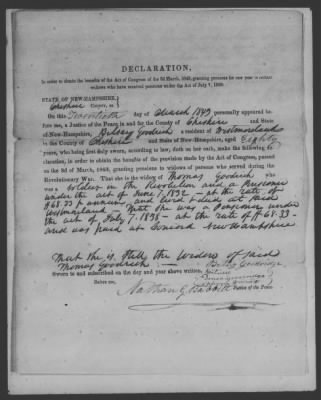 DECLARATION.
In order to obtain the benefits of the Act of Congress of the 3d March, 1843, granting pensions for one year to certain
widows who have received pensions under the Act of July 7, 1838.
STATE OF NEW-HAMPSHIRE,
Cheshire County, ss.
On this Twentieth day of March 1843 personally appeared be-
fore me, a Justice of the Peace in and for the County of Cheshire and State
of New-Hampshire, Betsey Goodrich a resident of Westmoreland
in the County of Cheshire and State of New-Hampshire, aged Eighty
years, who being first duly sworn, according to law, doth on her oath, make the following de-
claration, in order to obtain the benefits of the provision made by the Act of Congress, passed
on the 3d of March, 1843, granting pensions to widows of persons who served during the
Revolutionary War. That she is the widow of Thomas Goodrich who
was a Soldier in the Revolution and a Pensioner
under the act of June 7, 1832 - at the rate of
$68.33 pr annum, and lived & died at said
Westmoreland. That she was a Pensioner under
the act of July 7, 1838 - at the rate of $68.33 -
and was paid at Concord New Hampshire
That she is still the widow of said
Thomas Goodrich
Sworn to and subscribed on the day and year above written,
Before me,
Nathan G. Babbitt Justice of the Peace